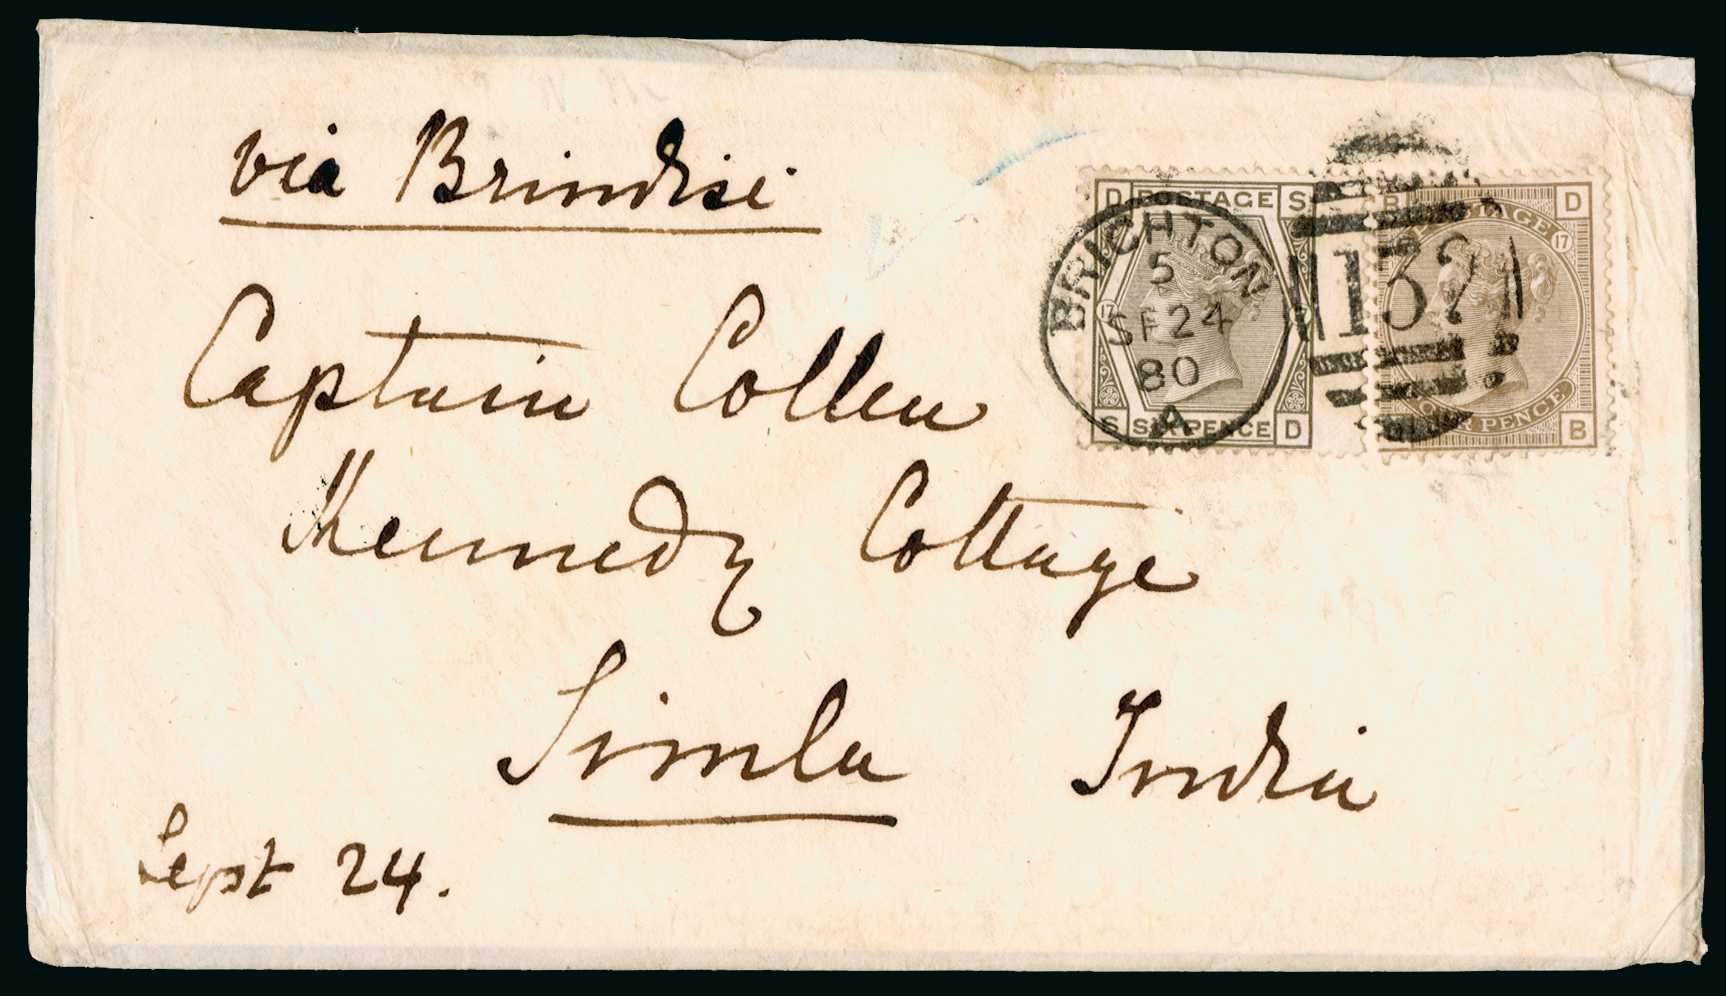 via Brindisi
D POSTAGE S
R POSTAGE D
17 17
BRIGHTON
5
SP 24
80
A
132
S SIXPENCE D
FOUR PENCE B
Captain Collen
Kennedy Cottage
Simla India
Sept 24.